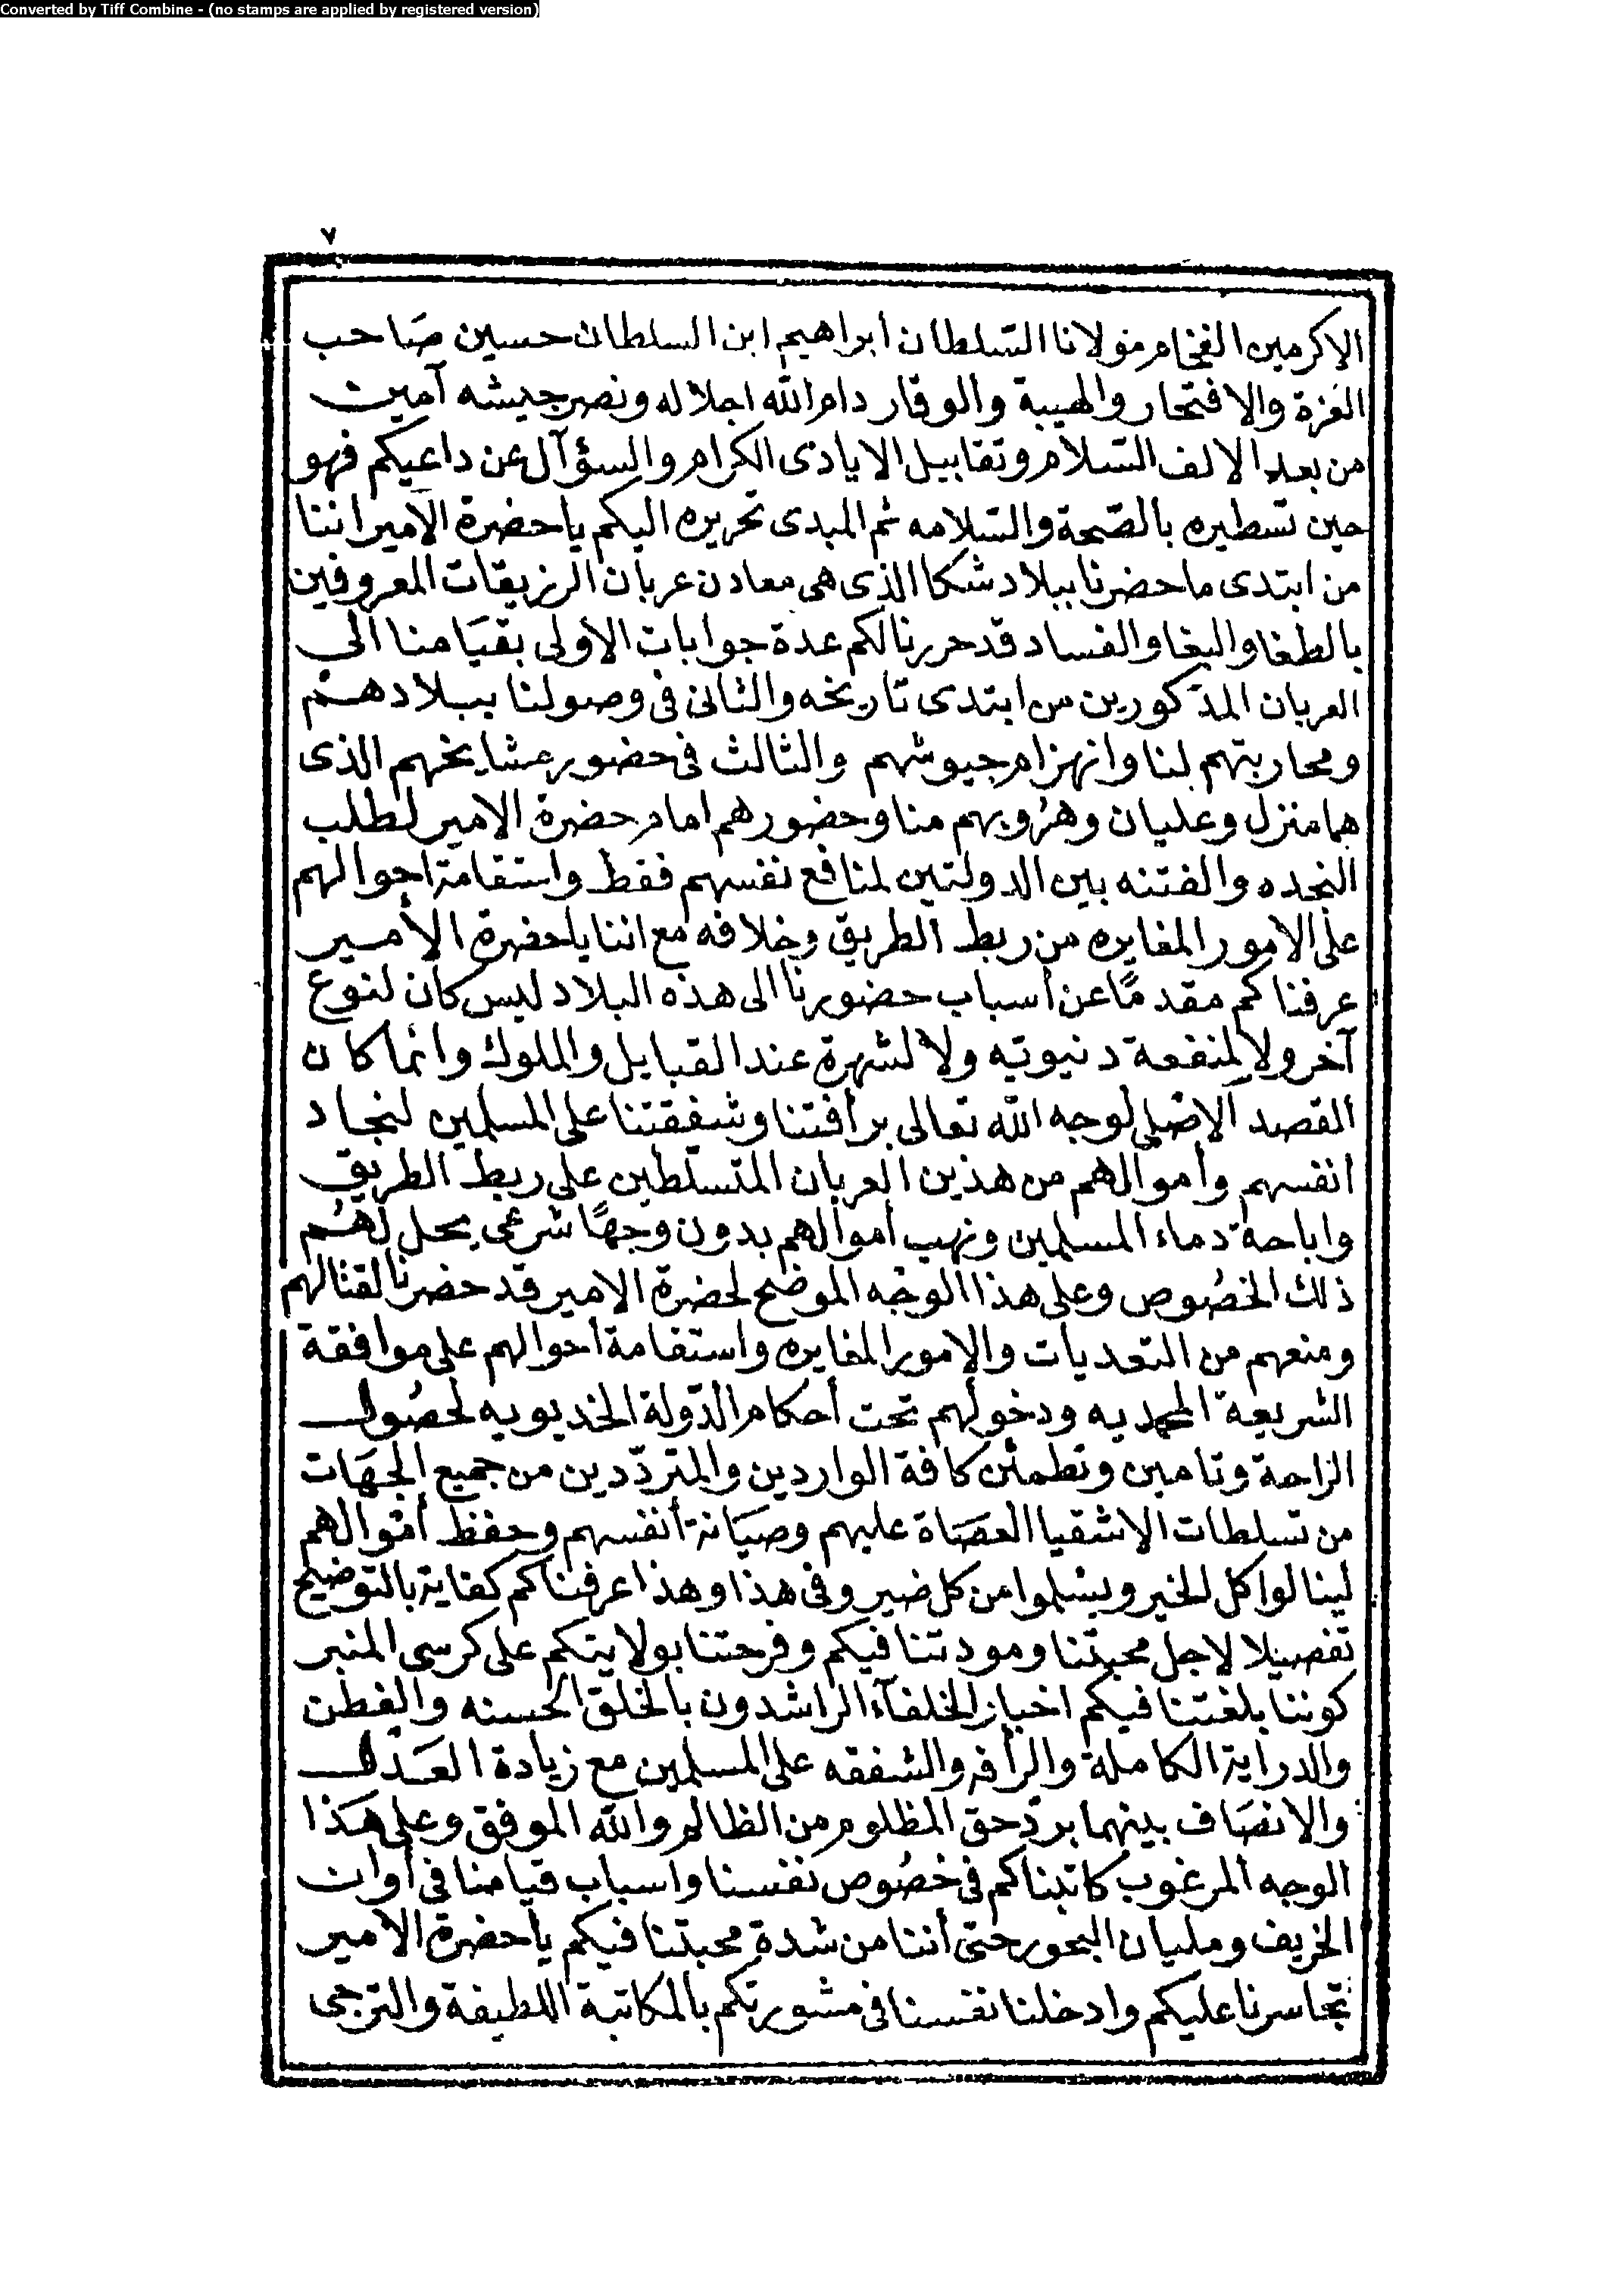 Converted by Tiff Combine - (no stamps are applied by registered version)
٧
الاكرمين الفخام مولانا السّلطان أبراهيم ابن السلطان حسين صَاحب
العَزة والافتخار والهيبة والوقار دام الله اجلاله ونصر جيشه آمين
من بعد الالف السّلام وتقابيل الايادى الكرام والسؤآل عن داعيكم فهو
حين تسطيره بالصّحة والسّلامه ثم المبدى تحريره اليكم يا حضرة الآمير اننا
من ابتدى ما حضرنا ببلاد شكا الذى هى معادن عربان الرزيقات المعروفين
بالطغا والبغا والفساد قد حررنا لكم عدة جوابات الاولى بقيَامنا الى
العربان المذكورين من ابتدى تاريخه والثانى فى وصولنا ببلادهم
ومحاربتهم لنا وانهزام جيوشهم والثالث فى حضور مشايخهم الذى
هما منزل وعليان وهرُوبهم منا وحضورهم امام حضرة الامير لطلب
النجده والفتنه بين الدولتين لمنافع نفسهم فقط واستقامة احوالهم
على الامور المغايره من ربط الطريق وخلافه مع اننا يا حضرة الأمير
عرفناكم مقدمًا عن أسباب حضورنا الى هذه البلاد ليس كان لنوع
آخر ولا لمنفعة دنيويّه ولا لشهرة عند القبايل والملوك وانما كان
ألقصد الاصلى لوجه الله تعالى برأفتنا وشفقتنا على المسلمين لنجاد
انفسهم وأموالهم من هذين العربان المتسلّطين على ربط الطريق
واباحة دماء المسلمين ونهب أموالهم بدون وجهًا شرعى يحل لهُم
ذلك الخصُوص وعلى هذا الوجْه الموضح لحضرة الامير قد حضرنا لقتالهم
ومنعهم من التعديات والامور المغايره واستقامة أحوالهم على موافقة
الشريعة المحمديه ودخولهم تحت أحكام الدّولة الخديويه لحصُول
الراحة وتامين وتطمئن كافة الواردين والمتردّدين من جميع الجهَات
من تسلطات الاشقيا العصَاة عليهم وصيَانة أنفسهم وحفظ أموالهم
لينالوا كل الخير ويسْلموا من كل ضير وفى هذا وهذا عرفناكم كفاية بالتوضيح
تفصيلا لاجل محبتنا ومودتنا فيكم وفرحتنا بولايتكم على كرسى المنبر
كوننا بلغتنا فيكم اخبار الخلفآء الراشدون بالخلق الحسنه والفطن
والدراية الكاملة والرأفه والشفقه على المسلمين مع زيادة العَدل
والانصَاف بينهما بردّ حق المظلوم من الظالم والله الموفق وعلى هَذا
الوجه ألمرغوب كاتبناكم فى خصُوص نفسنا واسباب قيامنا فى أوان
الخريف ومليان البحور حتى أننا من شدة محبتنا فيكم يا حضرة الامير
تجاسرنا عليكم وادخلنا نفسنا فى مشورتكم بالمكاتبة اللطيفة والترجى